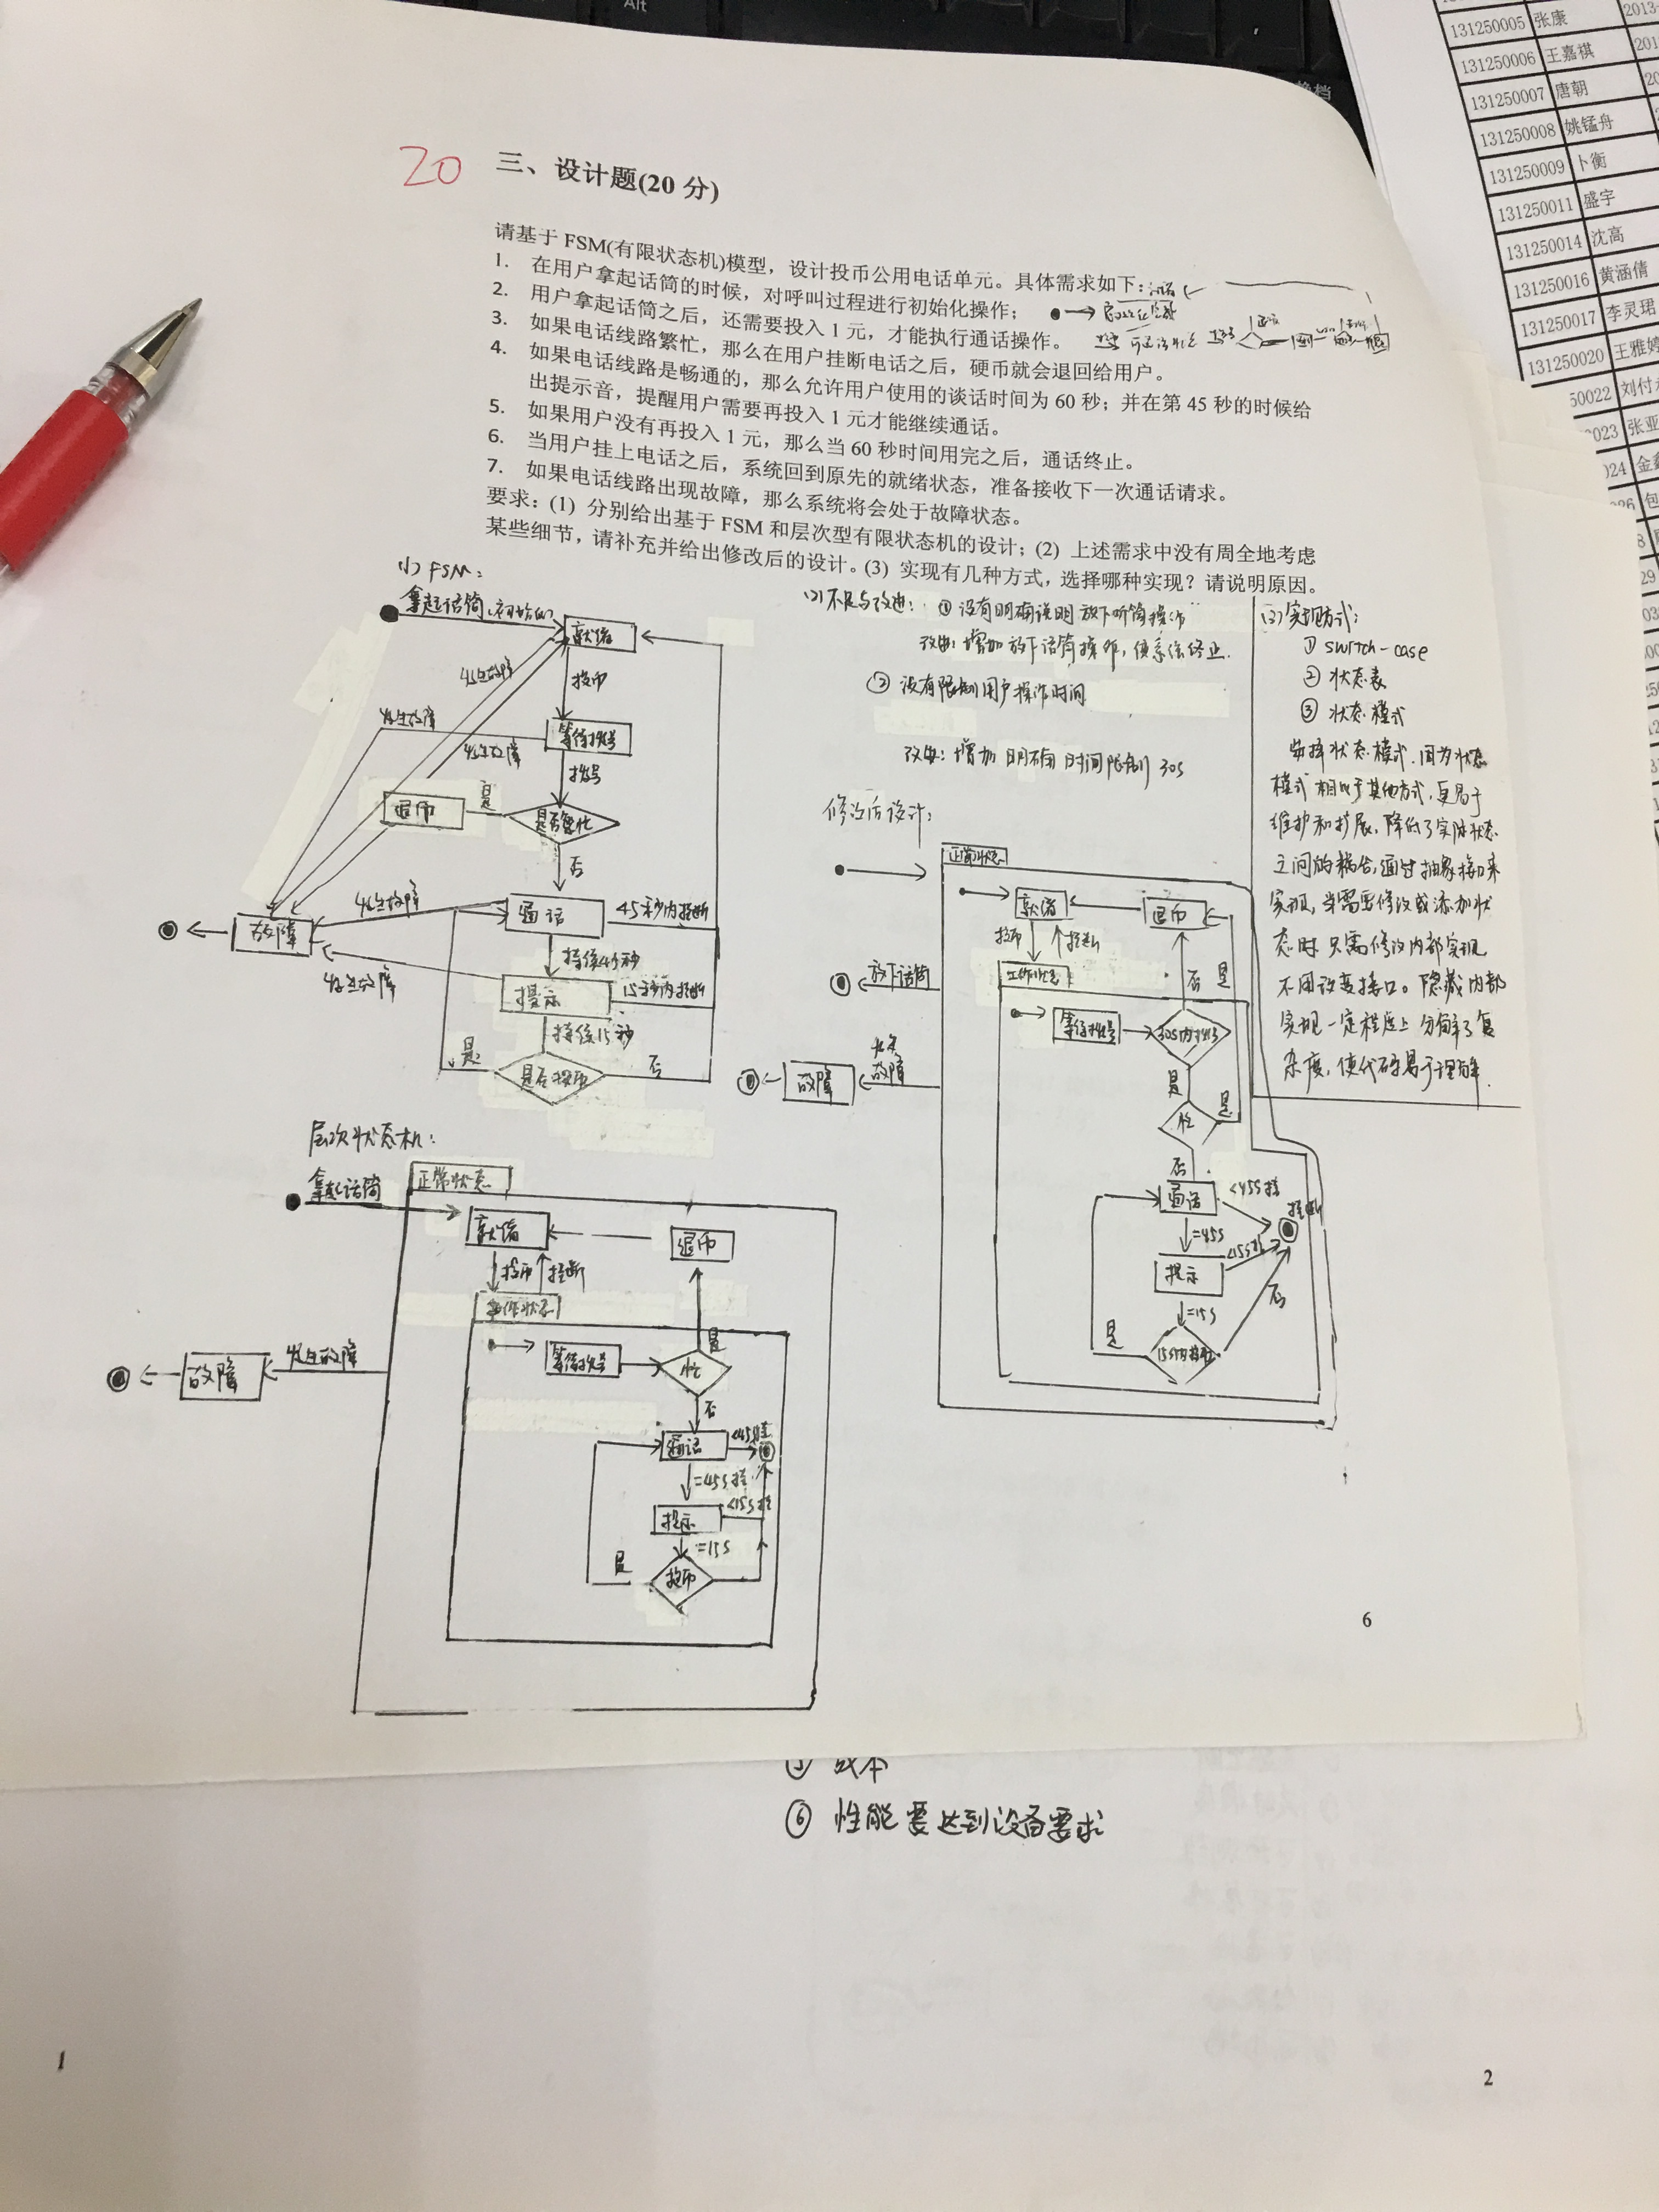 Alt
换档
131250005 张康 2013
131250006 王嘉祺 201
131250007 唐朝 20
131250008 姚锰舟
131250009 卜衡
131250011 盛宇
131250014 沈高
131250016 黄涵倩
131250017 李灵珺
131250020 王雅婷
50022 刘付
023 张亚
024 金鑫
026 包
20
三、设计题(20 分)
请基于 FSM(有限状态机)模型，设计投币公用电话单元。具体需求如下：
1. 在用户拿起话筒的时候，对呼叫过程进行初始化操作；
2. 用户拿起话筒之后，还需要投入 1 元，才能执行通话操作。
3. 如果电话线路繁忙，那么在用户挂断电话之后，硬币就会退回给用户。
4. 如果电话线路是畅通的，那么允许用户使用的谈话时间为 60 秒；并在第 45 秒的时候给
出提示音，提醒用户需要再投入 1 元才能继续通话。
5. 如果用户没有再投入 1 元，那么当 60 秒时间用完之后，通话终止。
6. 当用户挂上电话之后，系统回到原先的就绪状态，准备接收下一次通话请求。
7. 如果电话线路出现故障，那么系统将会处于故障状态。
要求：(1) 分别给出基于 FSM 和层次型有限状态机的设计；(2) 上述需求中没有周全地考虑
某些细节，请补充并给出修改后的设计。(3) 实现有几种方式，选择哪种实现？请说明原因。
(1) FSM：
拿起话筒、初始化
就绪
发生故障
投币
发生故障
发生故障
等待拨号
拨号
退币
是
是否繁忙
否
发生故障
通话
45秒内挂断
故障
持续45秒
发生故障
提示
15秒内挂断
持续15秒
是
是否投币
否
层次状态机：
拿起话筒
正常状态
就绪
退币
投币
挂断
工作状态
是
等待拨号
忙
发生故障
故障
否
通话
<45挂
=45s挂
提示
<15s挂
=15s
是
投币
(2) 不足与改进：① 没有明确说明放下听筒操作
改进：增加放下话筒操作，使系统终止.
② 没有限制用户操作时间
改进：增加明确时间限制 30s
修改后设计：
正常状态
就绪
退币
投币
挂断
放下话筒
工作状态
否
是
等待拨号
30s内拨号
发生故障
故障
是
忙
是
否
通话
<45s挂
挂断
=45s
<15s挂
提示
=15s
否
是
15s内投币
(3) 实现方式：
① switch-case
② 状态表
③ 状态模式
选择状态模式，因为状态
模式相比于其他方式，更易于
维护和扩展，降低了实际状态
之间的耦合，通过抽象接口来
实现，当需要修改或添加状
态时，只需修改内部实现
不用改变接口。隐藏内部
实现一定程度上分解了复
杂度，使代码易于理解.
6
⑤ 成本
⑥ 性能要达到设备要求
1
2